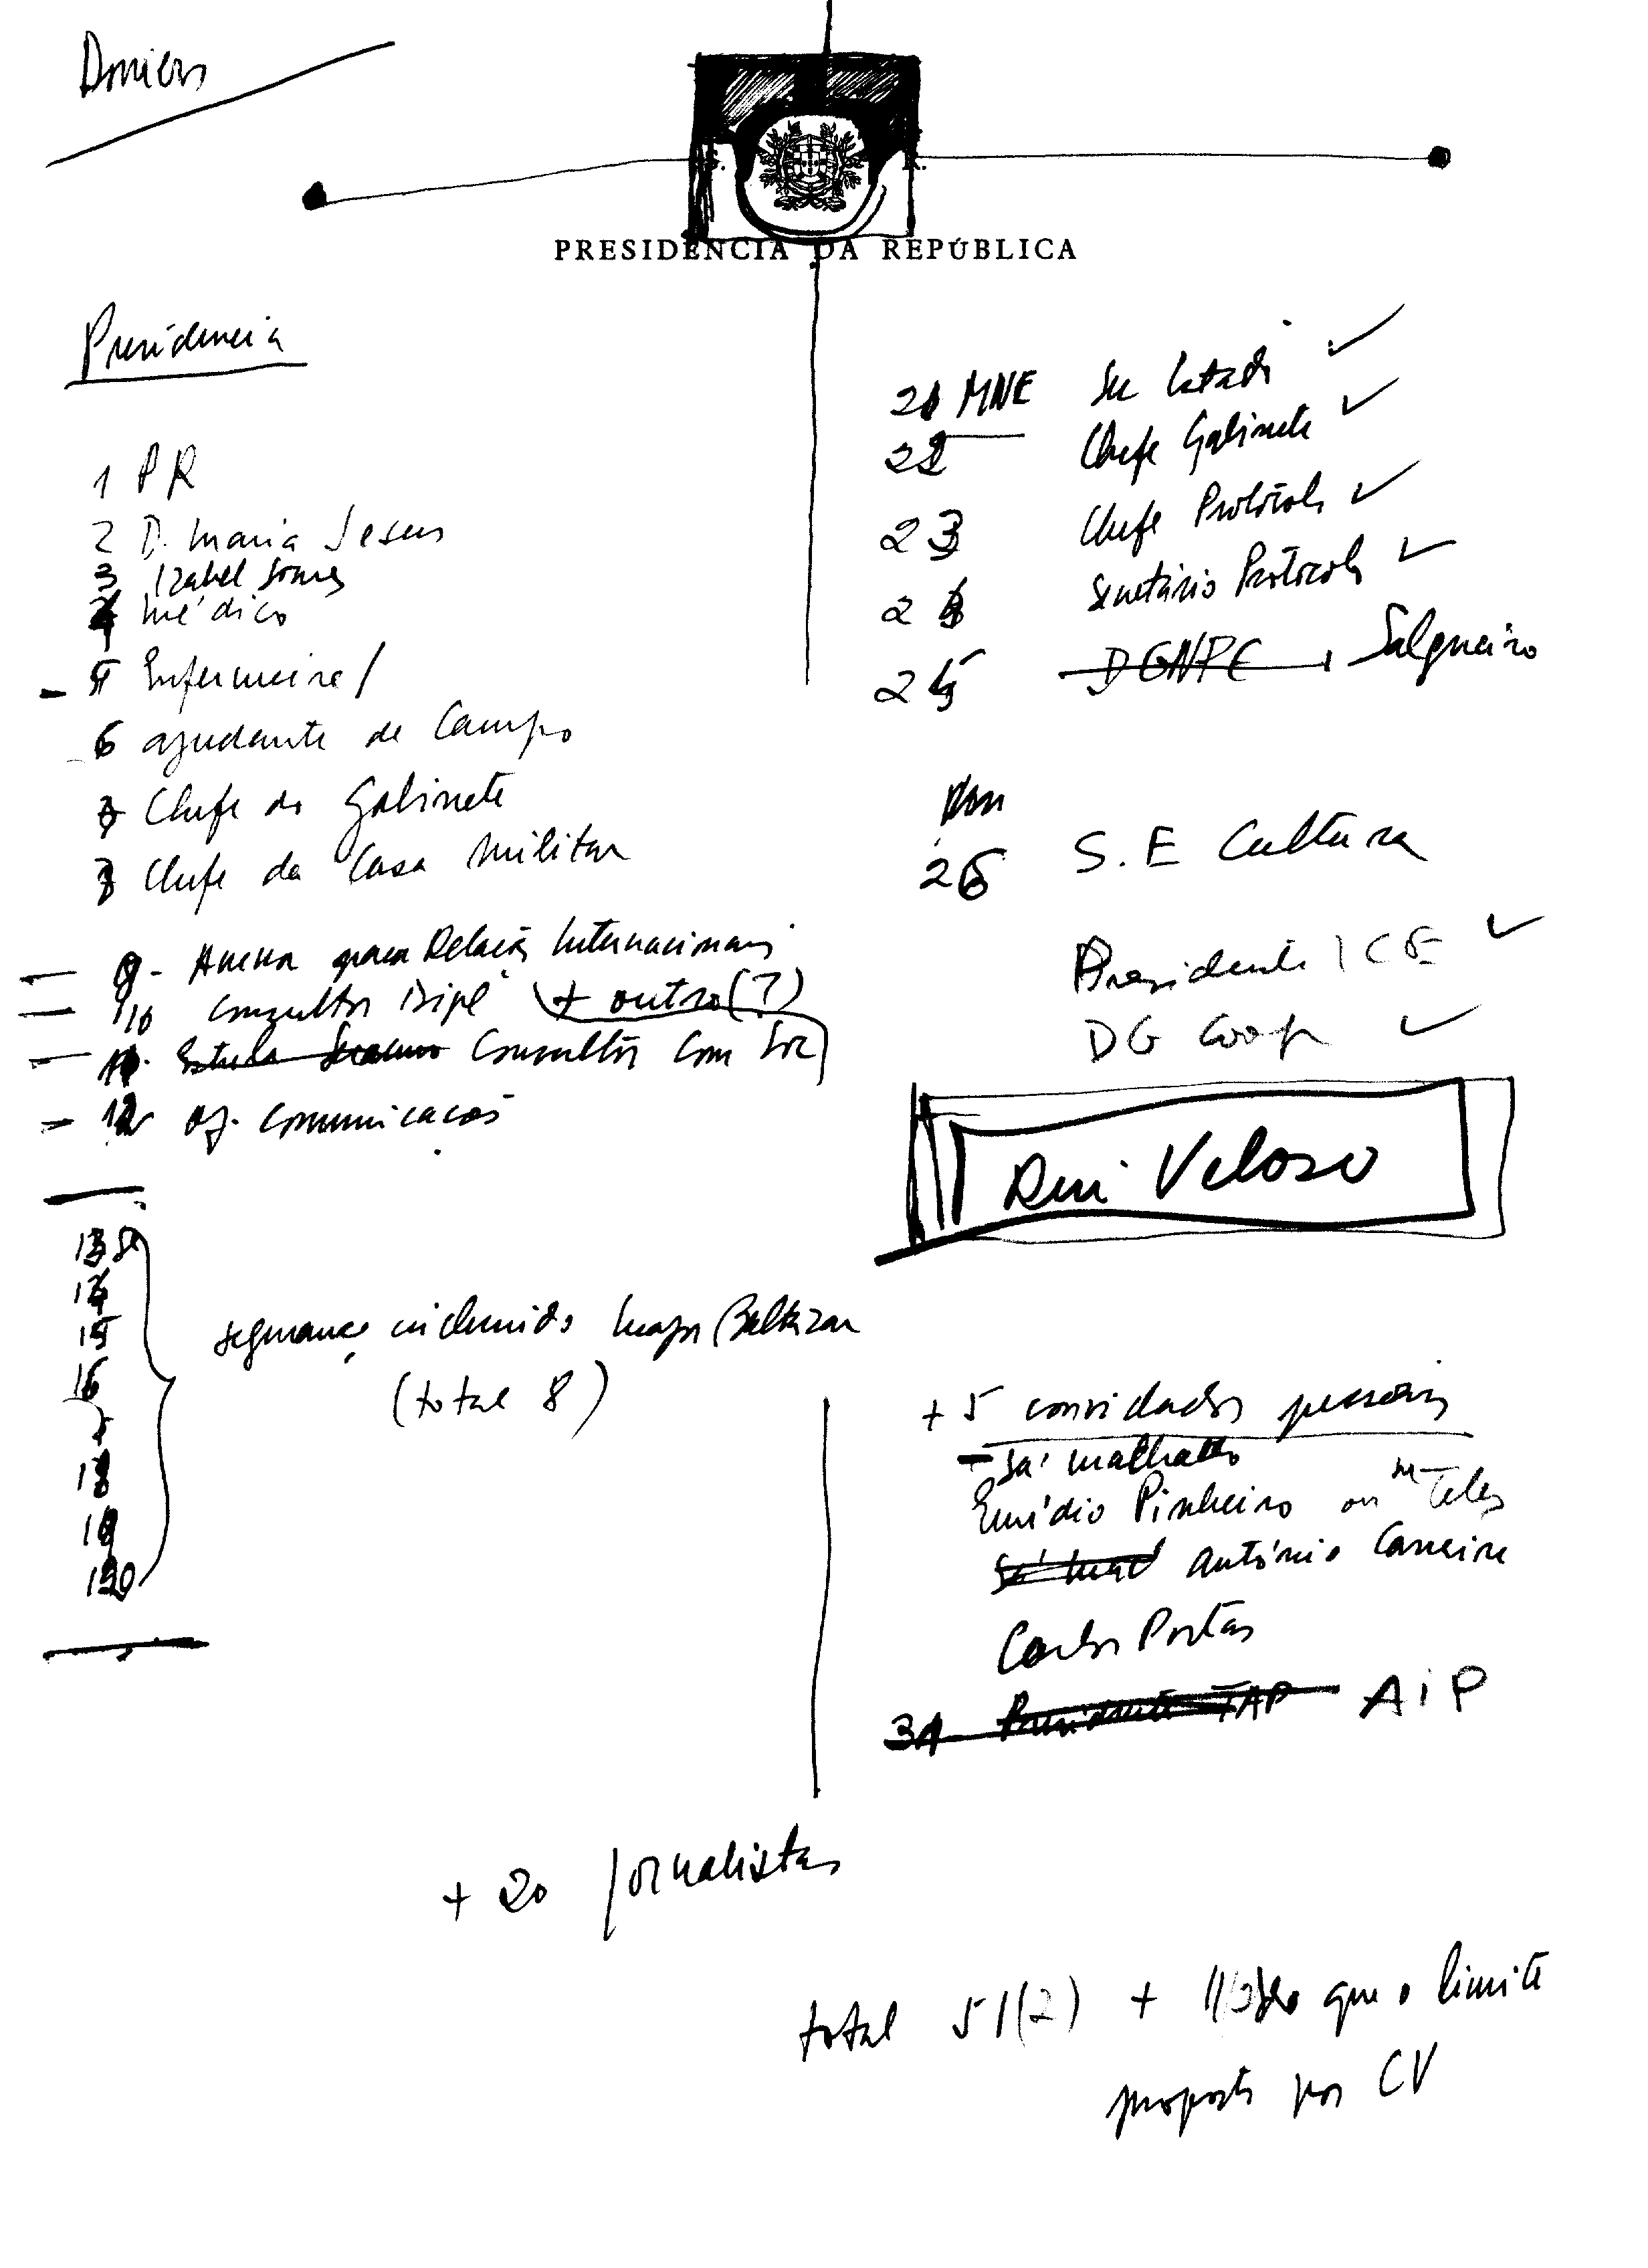 PRESIDÊNCIA DA REPÚBLICA
Presidencia
1 PR
2 D. Maria Jesus
3 Izabel Soares
4 Médico
5 Enfermeira/
6 ajudante de Campo
7 Chefe do Gabinete
8 Chefe da Casa Militar
9- para Relações Internacionais
10 Consultor Dipl + outro (?)
11. Consultor Com Soc
12 Of. Comunicações
13 8
14
15
16
18
19
20
segurança incluindo Major Baltazar
(total 8)
21 MNE Sec Estado ✓
22 Chefe Gabinete ✓
23 Chefe Protocolo ✓
24 Secretário Protocolo ✓
25 DGNPE Salgueiro
26 S.E Cultura
Presidente ICE ✓
DG Coop ✓
Rui Veloso
+ 5 convidados pessoais
- Sá Machado
Emídio Pinheiro ou Teles
António Carneiro
Carlos Portas
31 Presidente TAP AIP
+ 20 jornalistas
total 51(2) + que o limite
proposto por CV